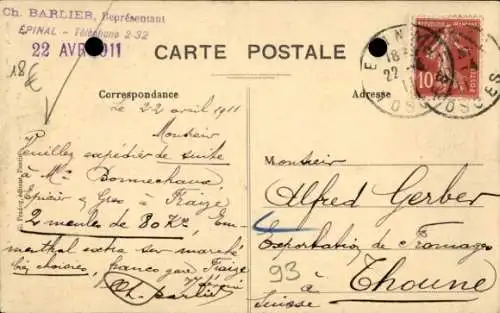 Ch. BARLIER, Représentant
ÉPINAL - Téléphone 2-32
22 AVR 1911
18 €
CARTE POSTALE
Correspondance
Adresse
Le 22 avril 1911
Monsieur
Veuillez expédier de suite
à Mr Bonnechaux,
Épicier en Gros à Fraize
2 meules de 80 Ks, Em-
menthal extra sur marché
bien choisies, franco gare Fraize
Ch. Barlier
Monsieur
Alfred Gerber
Exportation de Fromages
93 à
Thoune
Suisse
10
POSTES
VOSGES